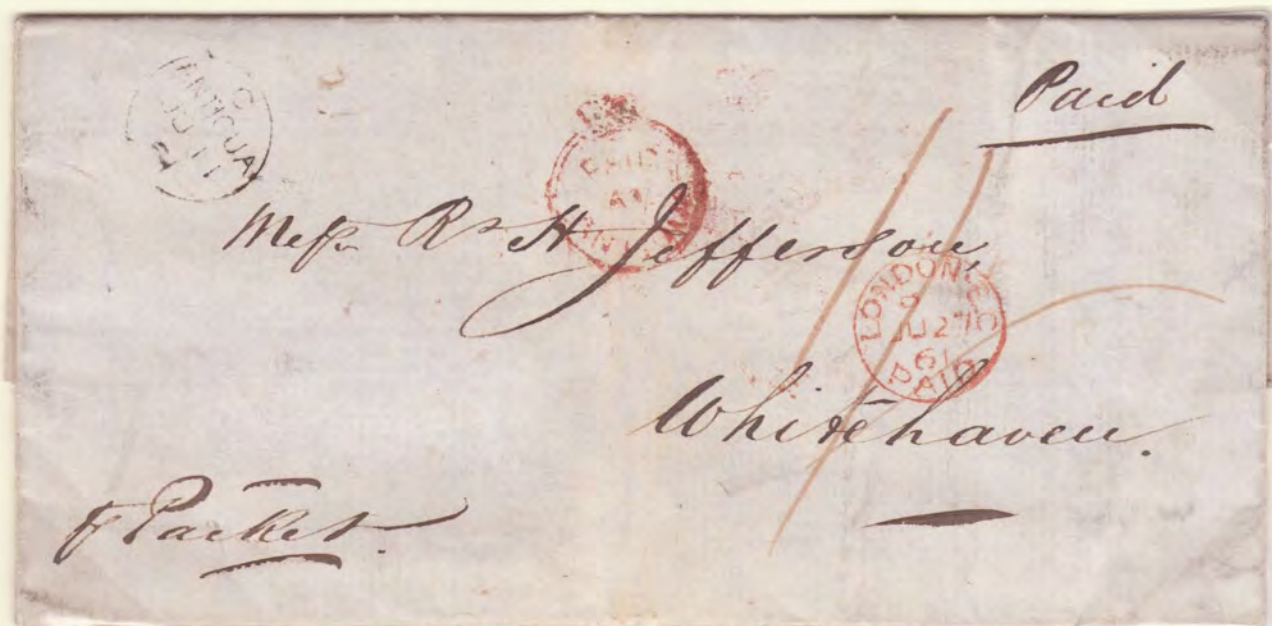 Paid
C
ANTIGUA
JU 11
PAID
AT
ANTIGUA
Messrs R & H Jefferson,
LONDON.E.C
JU 27
61
PAID
Whitehaven.
p Packet.